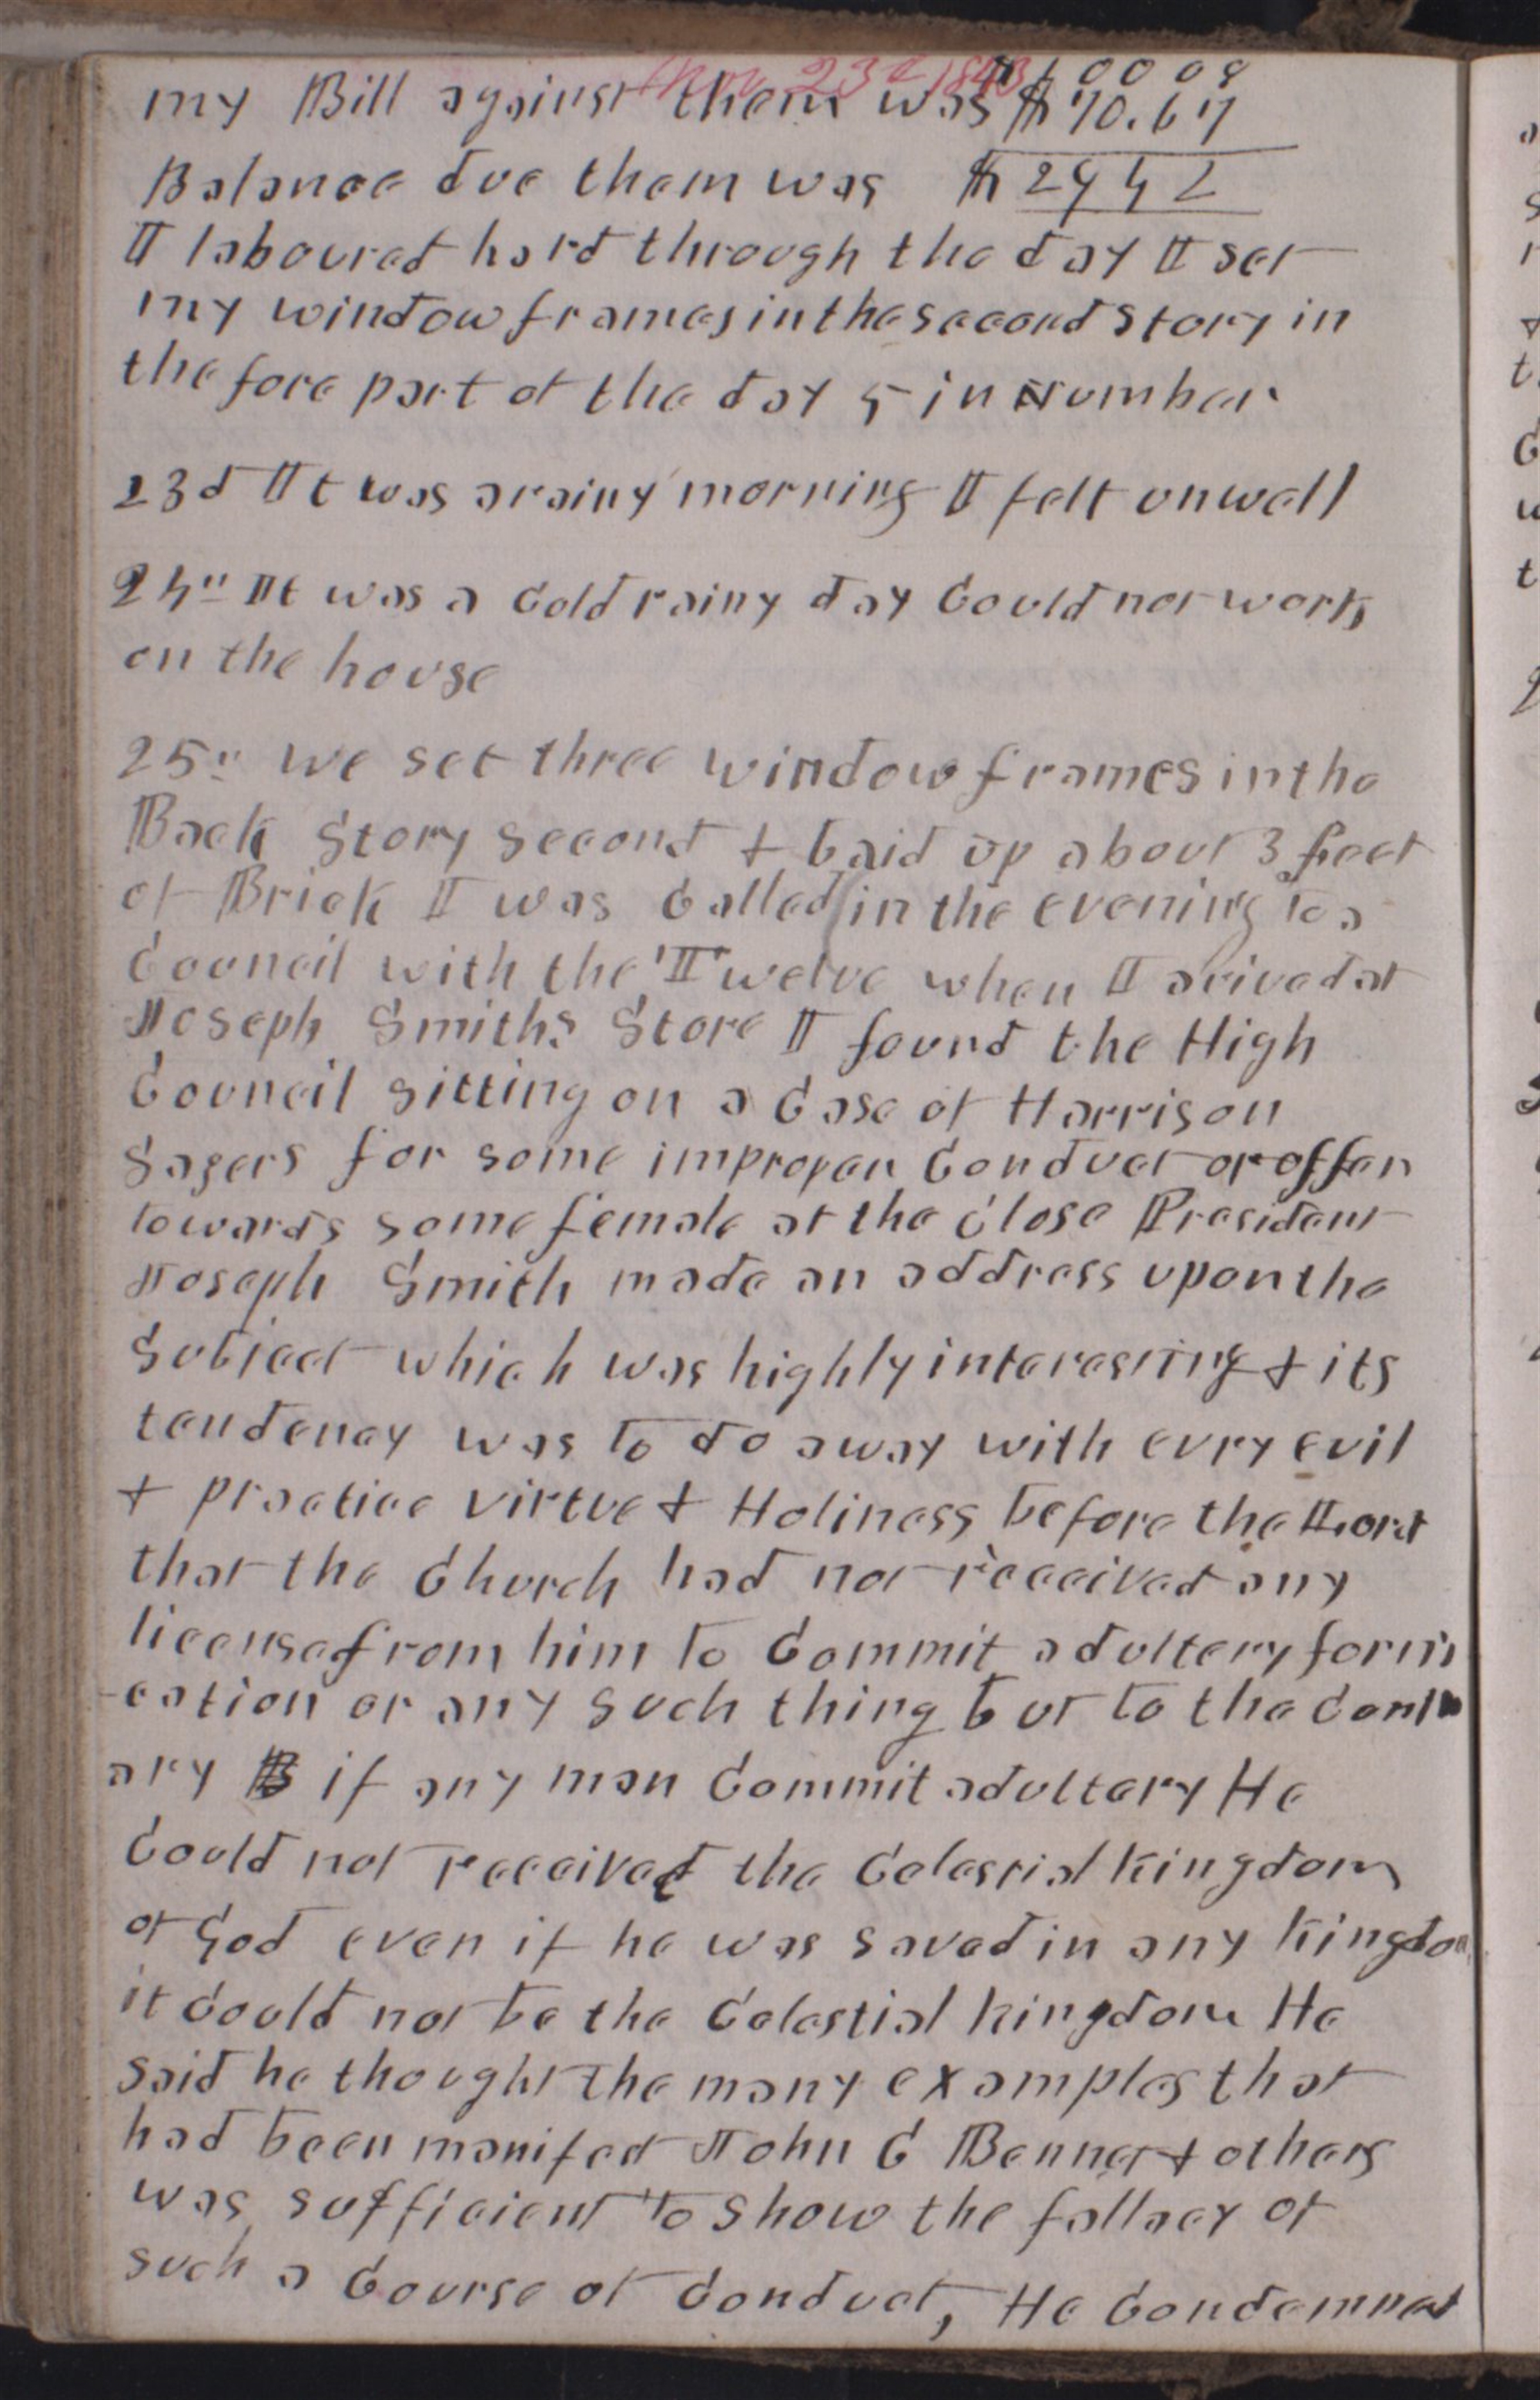 Nov 23d 1843
$100.09
my Bill against them was $70.67
Balance due them was $29 42
I laboured hard through the day I set
my window frames in the second story in
the fore part of the day 5 in Number
23d It was a rainy morning I felt unwell
24" It was a Cold rainy day Could not work
on the house
25" we set three window frames in the
Back Story second & laid up about 3 feet
of Brick I was Called in the evening to a
Council with the Twelve when I arived at
Joseph Smiths Store I found the High
Council sitting on a Case of Harrison
Sagers for some improper Conduct or offer
towards some female at the Close President
Joseph Smith made an address upon the
Subject which was highly interesting & its
tendency was to do away with evry evil
& practice virtue & Holiness before the Lord
that the Church had not received any
license from him to Commit adultery forni
-cation or any such thing but to the Contr
ary if any man Commit adultery He
Could not received the Celestial kingdom
of God even if he was saved in any kingdom
it Could not be the Celestial kingdom He
said he thought the many examples that
had been manifest John C Bennet & others
was sufficient to show the fallacy of
such a Course of Conduct, He Condemned